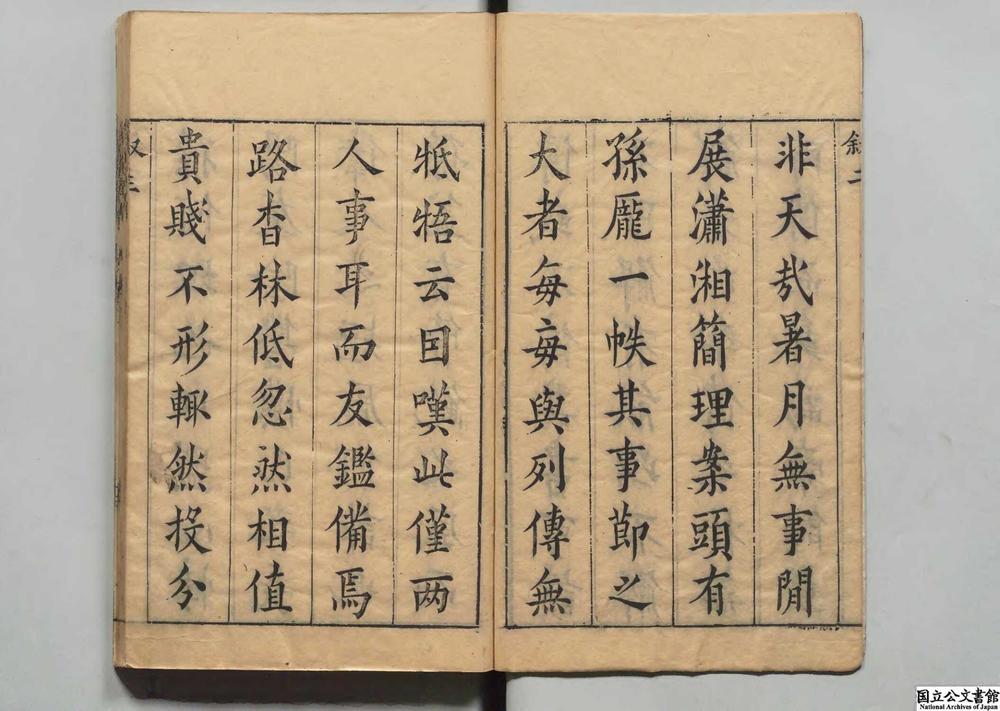 敘二
非天哉暑月無事閒
展瀟湘簡理案頭有
孫龐一帙其事節之
大者每每與列傳無
牴牾云因嘆此僅兩
人事耳而友鑑備焉
路杳林低忽然相值
貴賤不形輒然投分
国立公文書館
National Archives of Japan